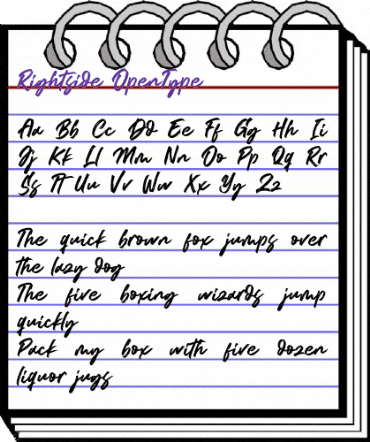 Rightside OpenType
Aa Bb Cc Dd Ee Ff Gg Hh Ii
Jj Kk Ll Mm Nn Oo Pp Qq Rr
Ss Tt Uu Vv Ww Xx Yy Zz
The quick brown fox jumps over
the lazy dog
The five boxing wizards jump
quickly
Pack my box with five dozen
liquor jugs